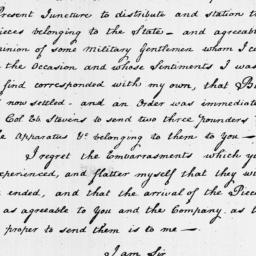 Present Juncture to distribute and station t
ieces belonging to the State - and agreeabl
pinion of some Military Gentlemen whom I co
the Occasion and whose Sentiments I was
find corresponded with my own, that B
now settled - and an Order was immediate
Col Eb Stevens to send two three pounders
e Apparatus &c belonging to them to you —
I regret the Embarrasments which y
xperienced, and flatter myself that they wi
ended, and that the arrival of the Piec
as agreeable to You and the Company as t
proper to send them is to me —
I am Sir